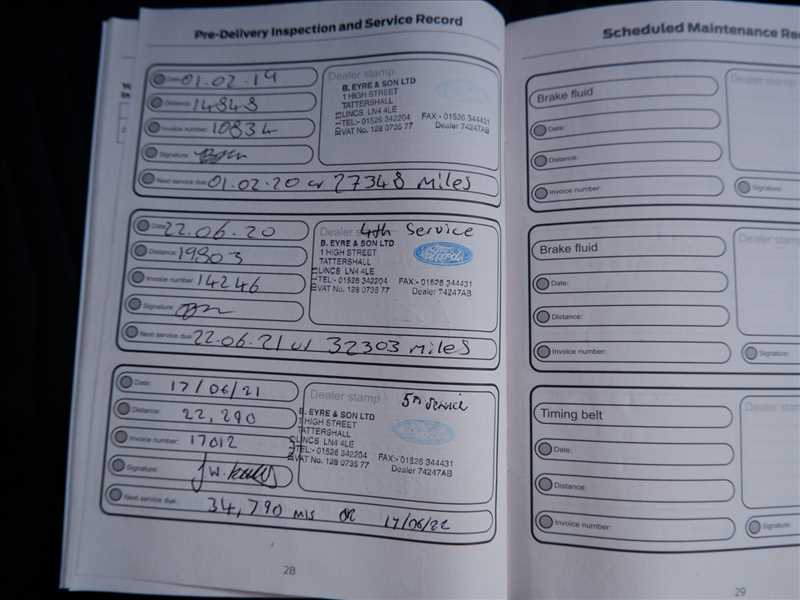 Pre-Delivery Inspection and Service Record
Date: 01.02.19
Distance: 14848
Invoice number: 10834
Signature:
Next service due: 01.02.20 or 27348 Miles
Dealer stamp
B. EYRE & SON LTD
1 HIGH STREET
TATTERSHALL
LINCS LN4 4LE
TEL:- 01526 342204 FAX:- 01526 344431
VAT No. 128 0735 77 Dealer 74247AB
Date: 22.06.20
Distance: 19803
Invoice number: 14246
Signature:
Next service due: 22.06.21 or 32303 Miles
Dealer stamp 4th Service
B. EYRE & SON LTD
1 HIGH STREET
TATTERSHALL
LINCS LN4 4LE
TEL:- 01526 342204 FAX:- 01526 344431
VAT No. 128 0735 77 Dealer 74247AB
Date: 17/06/21
Distance: 22,290
Invoice number: 17012
Signature:
Next service due: 34,790 MLS OR 17/06/22
Dealer stamp 5th Service
B. EYRE & SON LTD
1 HIGH STREET
TATTERSHALL
LINCS LN4 4LE
TEL:- 01526 342204 FAX:- 01526 344431
VAT No. 128 0735 77 Dealer 74247AB
28
Scheduled Maintenance Re
Brake fluid
Date:
Distance:
Invoice number:
Dealer stamp
Signature:
Brake fluid
Date:
Distance:
Invoice number:
Dealer stam
Signature:
Timing belt
Date:
Distance:
Invoice number:
Dealer stam
Signature:
29